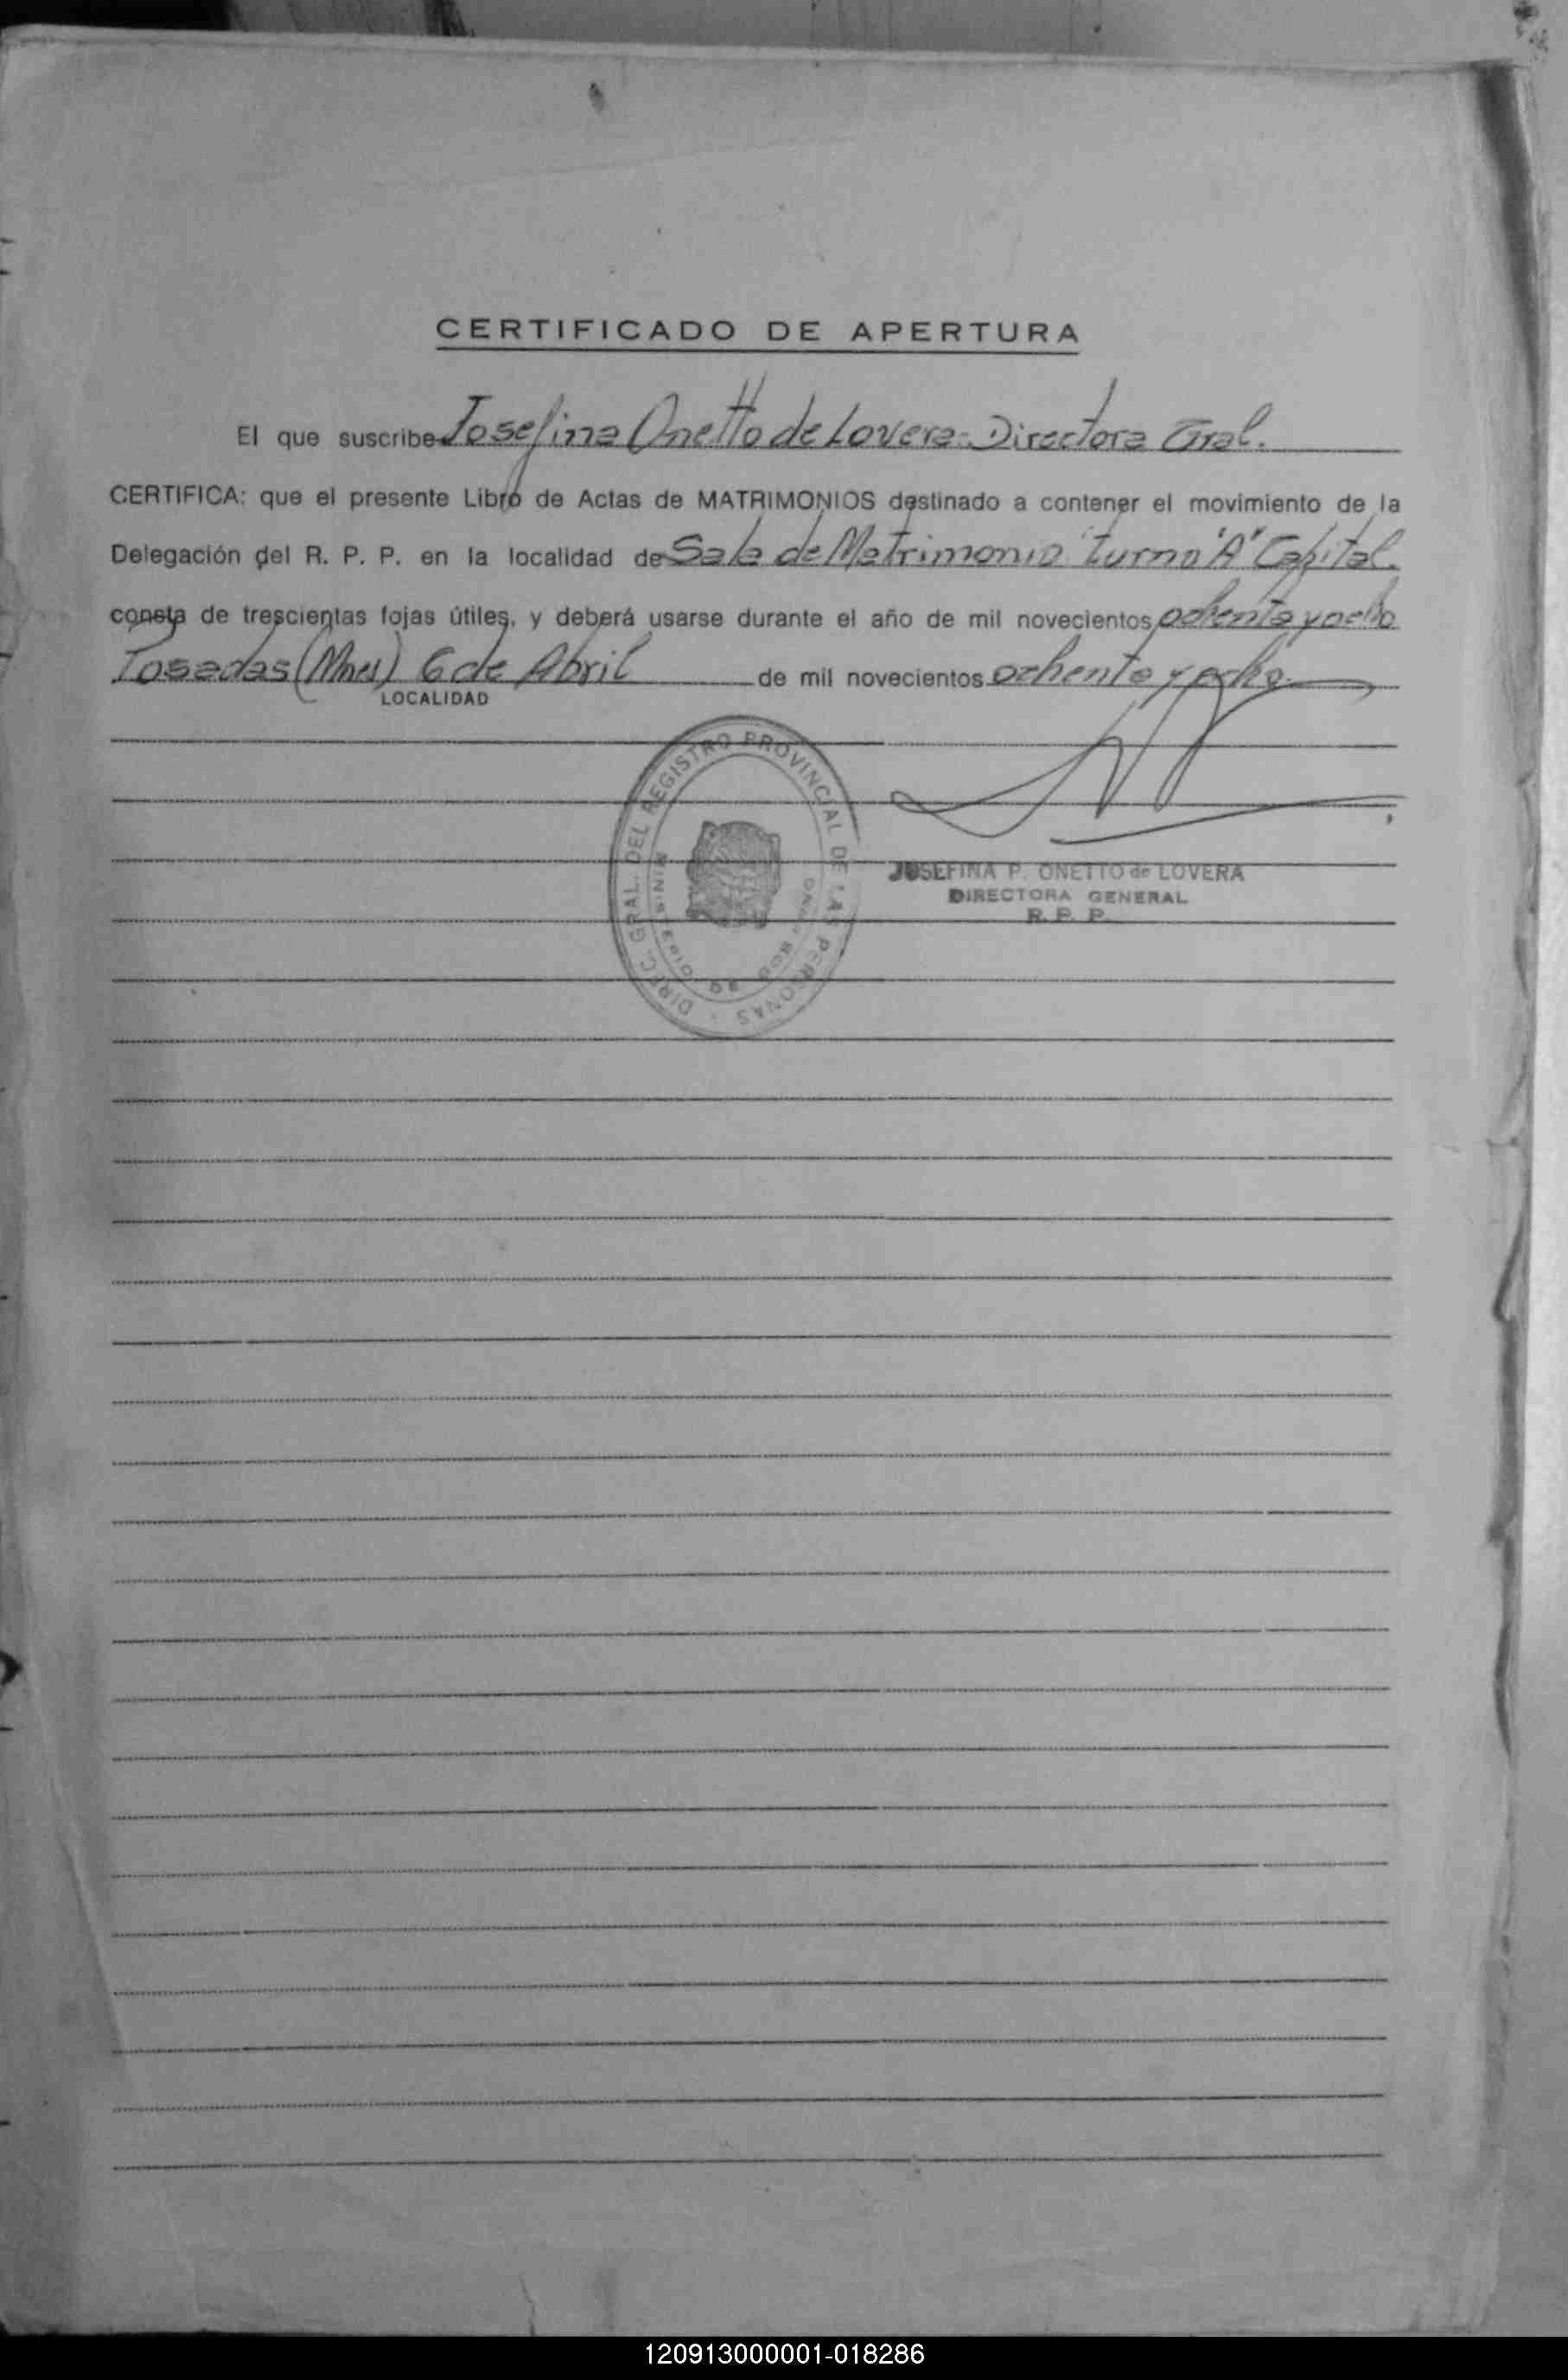 CERTIFICADO DE APERTURA
El que suscribe Josefina Onetto de Lovera - Directora Gral.
CERTIFICA: que el presente Libro de Actas de MATRIMONIOS destinado a contener el movimiento de la
Delegación del R. P. P. en la localidad de Sala de Matrimonio Turno "A" Capital.
consta de trescientas fojas útiles, y deberá usarse durante el año de mil novecientos ochenta y ocho
Posadas (Mnes) 6 de Abril de mil novecientos ochenta y ocho
LOCALIDAD
DIREC. GRAL. DEL REGISTRO PROVINCIAL DE LAS PERSONAS
JOSEFINA P. ONETTO de LOVERA
DIRECTORA GENERAL
R. P. P.
120913000001-018286